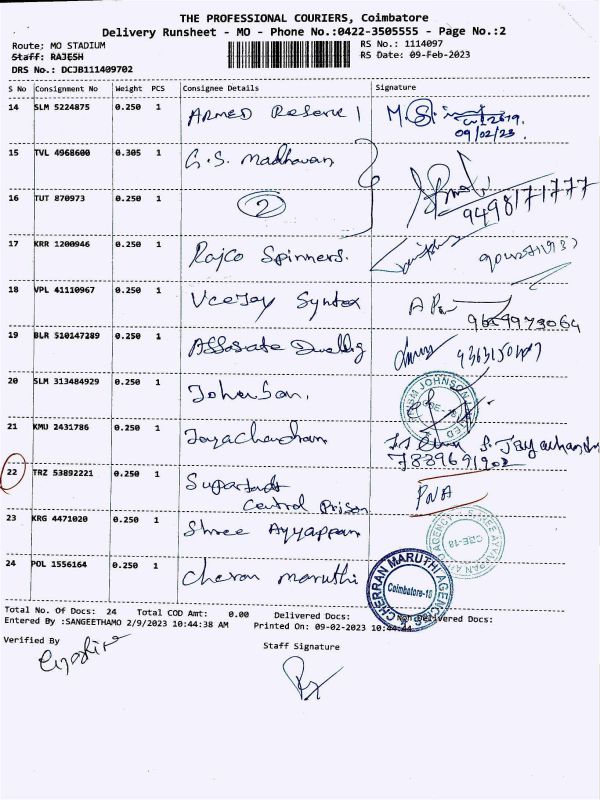 THE PROFESSIONAL COURIERS, Coimbatore
Delivery Runsheet - MO - Phone No.:0422-3505555 - Page No.:2
Route: MO STADIUM
RS No.: 1114097
Staff: RAJESH
RS Date: 09-Feb-2023
DRS No.: DCJB111409702
S No Consignment No Weight PCS Consignee Details Signature
14 SLM 5224875 0.250 1 Armed Reserve 1 M.
09/02/23.
15 TVL 4968600 0.305 1 G.S. Madhavan
16 TUT 870973 0.250 1 2
9498171777
17 KRR 1200946 0.250 1 Rajco Spinners.
18 VPL 41110967 0.250 1 Veejay Syntex
19 BLR 510147289 0.250 1
20 SLM 313484929 0.250 1 Johnson.
JOHNSON
21 KMU 2431786 0.250 1 Jayachandran
22 TRZ 53892221 0.250 1
Central Prison
23 KRG 4471020 0.250 1 Shree Ayyappan
CBE-18
24 POL 1556164 0.250 1 Cheran Maruthi
CHERRAN MARUTHI AGENCIES
Coimbatore-18
Total No. Of Docs: 24 Total COD Amt: 0.00 Delivered Docs: Non Delivered Docs:
Entered By :SANGEETHAMO 2/9/2023 10:44:38 AM Printed On: 09-02-2023 10:44:44
Verified By
Staff Signature